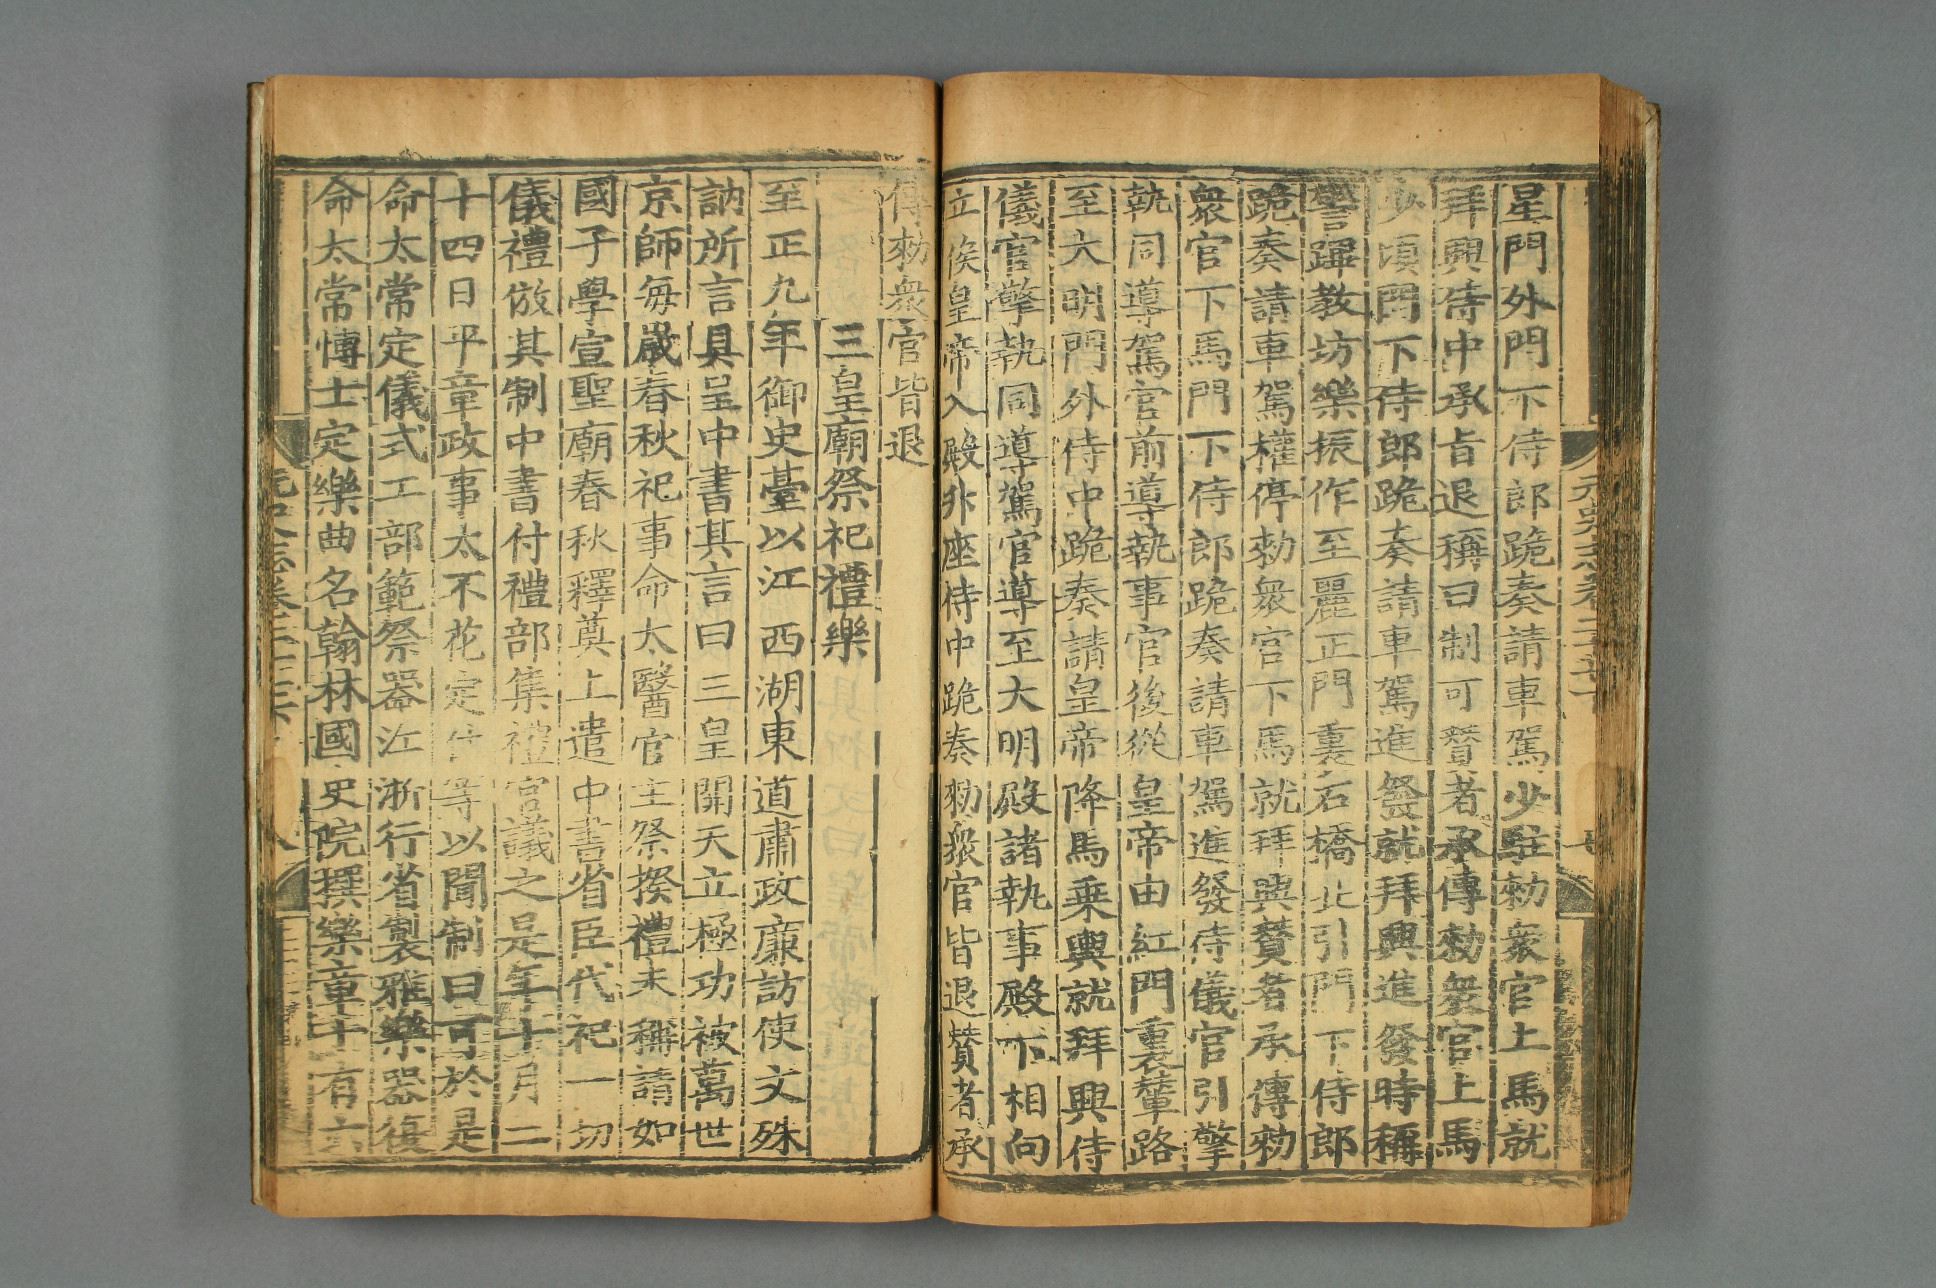 星門外門下侍郎跪奏請車駕少駐勑衆官上馬就
拜興侍中承旨退稱曰制可贊者承傳勑衆官上馬
少頃門下侍郎跪奏請車駕進發就拜興進發時稱
警蹕教坊樂振作至麗正門裏石橋北引門下侍郎
跪奏請車駕權停勑衆官下馬就拜興贊者承傳勑
衆官下馬門下侍郎跪奏請車駕進發侍儀官引擎
執同導駕官前導執事官後從皇帝由紅門裏輦路
至大明門外侍中跪奏請皇帝降馬乗輿就拜興侍
儀官擎執同導駕官導至大明殿諸執事殿下相向
立俟皇帝入殿升座侍中跪奏勑衆官皆退贊者承
傳勑衆官皆退
三皇廟祭祀禮樂
至正九年御史臺以江西湖東道肅政廉訪使文殊
訥所言具呈中書其言曰三皇開天立極功被萬世
京師每歲春秋祀事命太醫官主祭揆禮未稱請如
國子學宣聖廟春秋釋奠上遣中書省臣代祀一切
儀禮倣其制中書付禮部集禮官議之是年十月二
十四日平章政事太不花定住等以聞制曰可於是
命太常定儀式工部範祭器江浙行省製雅樂器復
命太常博士定樂曲名翰林國史院撰樂章十有六